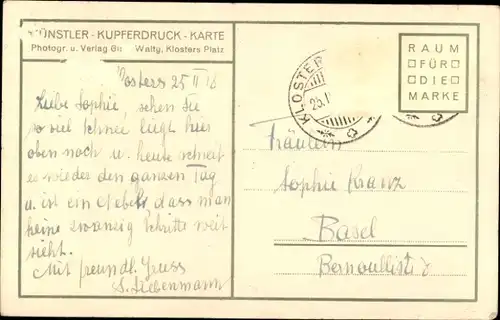 KÜNSTLER - KUPFERDRUCK - KARTE
Photogr. u. Verlag Walty, Klosters Platz
Klosters 25 II
Liebe Sophie, sehen Sie
so viel Schnee liegt hier
oben noch u. heute schneit
es wieder den ganzen Tag
u. ist ein Nebel dass man
keine zwanzig Schritte weit
sieht.
Mit freundl. Gruss
S. Liebermann
KLOSTER
25.
RAUM
FÜR
DIE
MARKE
Fräulein
Sophie Kranz
Basel